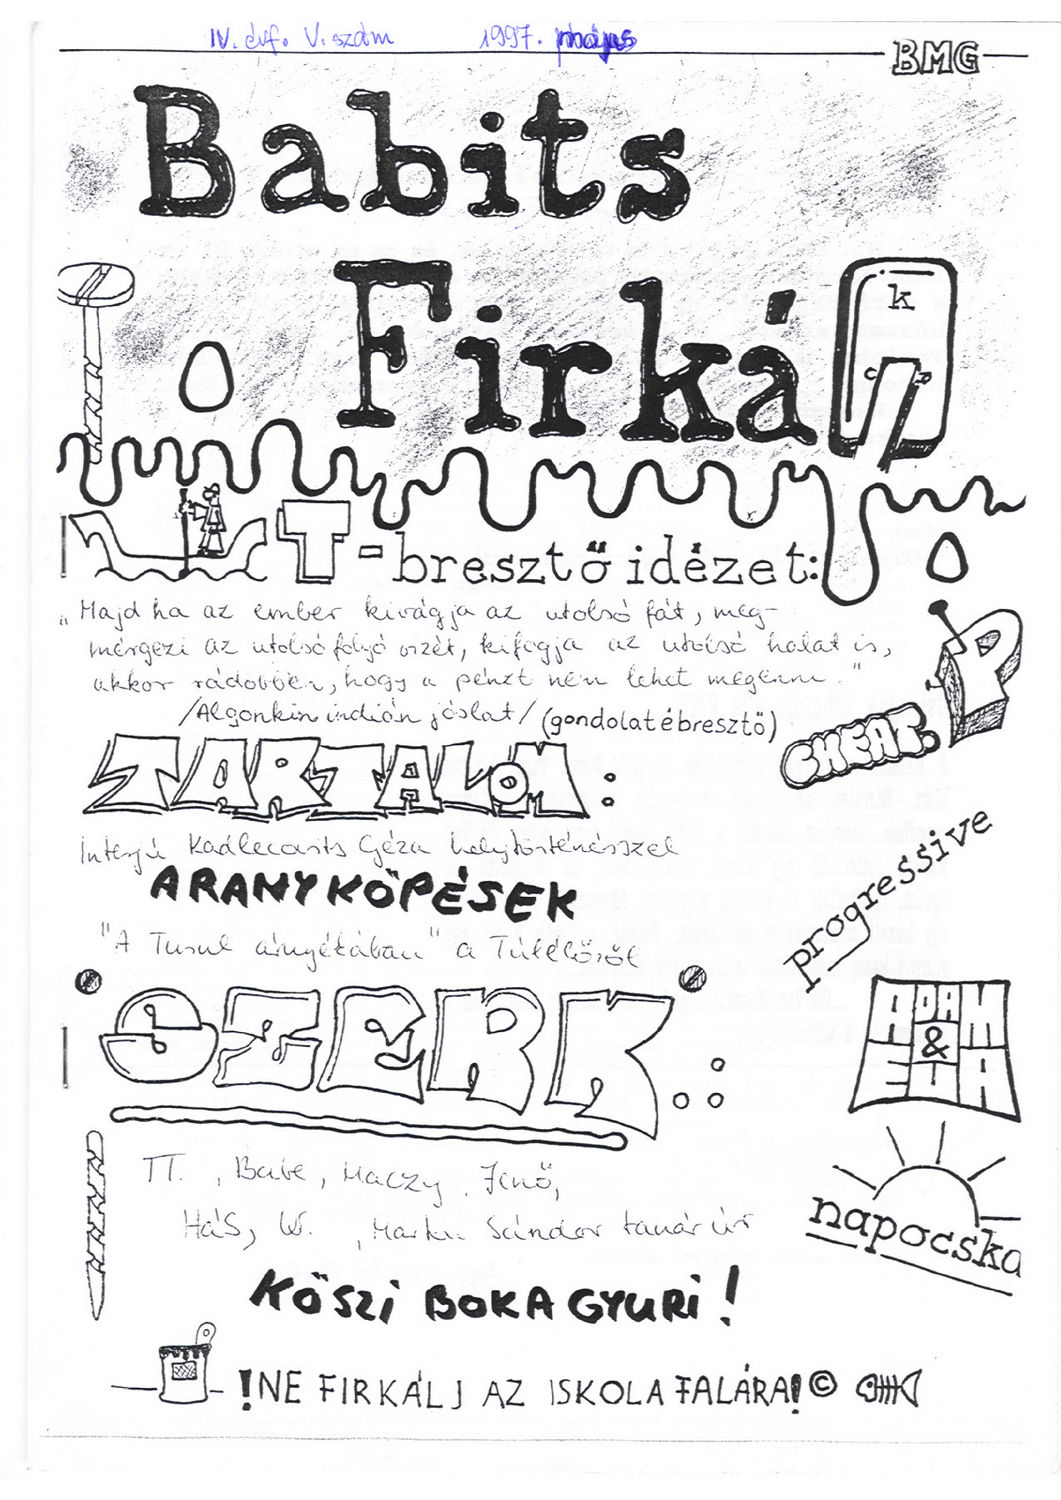 IV. évf. V. szám 1997. május
BMG
Babits
Firká
k
T-bresztő idézet:
„Majd ha az ember kivágja az utolsó fát, meg-
mérgezi az utolsó folyó vizét, kifogja az utolsó halat is,
akkor rádöbben, hogy a pénzt nem lehet megenni."
/Algonkin indián jóslat/ (gondolatébresztő)
CHEAT.
P
TARTALOM:
Interjú Kadlecovits Géza helytörténésszel
ARANYKÖPÉSEK
"A Turul árnyékában" a Túlélőről
progressive
SZERK.:
ÁDÁM
&
ÉVA
TT., Babe, Maczy, Jenő,
HáS, W., Sándor tanár úr
napocska
KÖSZI BOKA GYURI!
!NE FIRKÁLJ AZ ISKOLA FALÁRA! ©